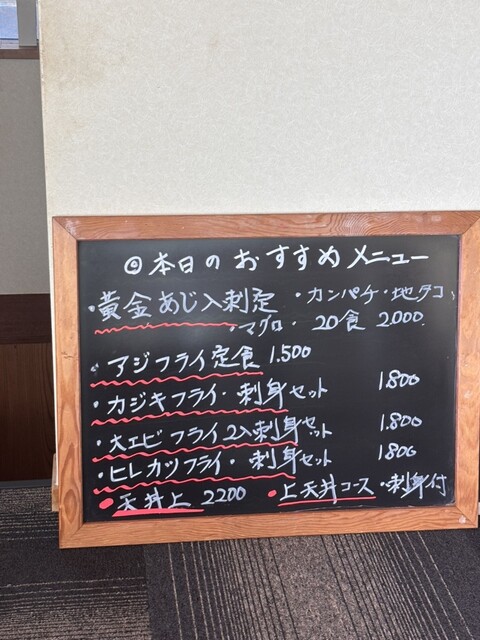 ◎本日のおすすめメニュー
・黄金あじ入刺定 ・カンパチ・地ダコ
・マグロ・ 20食 2.000
・アジフライ定食 1.500
・カジキフライ・刺身セット 1.800
・大エビフライ2入刺身セット 1.800
・ヒレカツフライ・刺身セット 1.800
・天丼上 2200 ・上天丼コース・刺身付